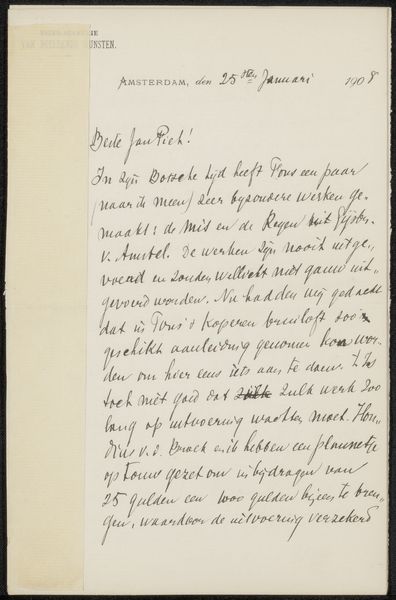 VAN BEELDENDE KUNSTEN.
AMSTERDAM, den 25sten Januari 1908
Beste Jan Piet!
In zijn Botsche tijd heeft Tons een paar
(naar ik meen) zeer byzondere werken ge-
maakt: de Mis en de Reyen uit Gijsbr.
v. Amstel. De werken zijn nooit uitge-
voerd en zouden wellicht niet gauw uit-
gevoerd worden. Nu hadden wij gedacht
dat in Tons' koperen bruiloft zoo'n
geschikt aanleiding genomen kon wor-
den om hier eens iets aan te doen. 't Is
toch niet goed dat zulk werk zoo
lang op uitvoering wachten moet. Hon-
dius v. d. Broek en ik hebben een plannetje
op touw gezet om in bijdragen van
25 gulden een 1000 gulden bijeen te bren-
gen, waardoor de uitvoering verzekerd